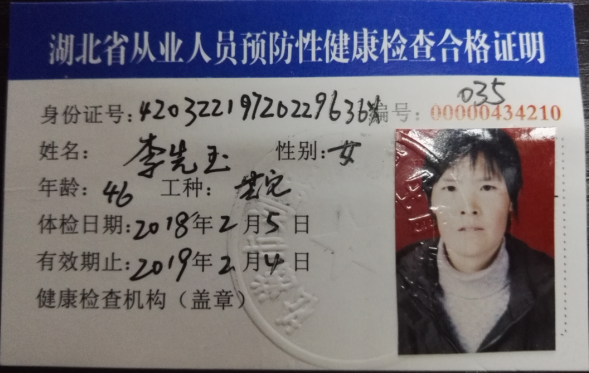 湖北省从业人员预防性健康检查合格证明
035
身份证号:42032219720229636X 编号:00000434210
姓名: 李先玉 性别:女
年龄:46 工种:
体检日期:2018年2月5日
有效期止:2019年2月4日
健康检查机构（盖章）